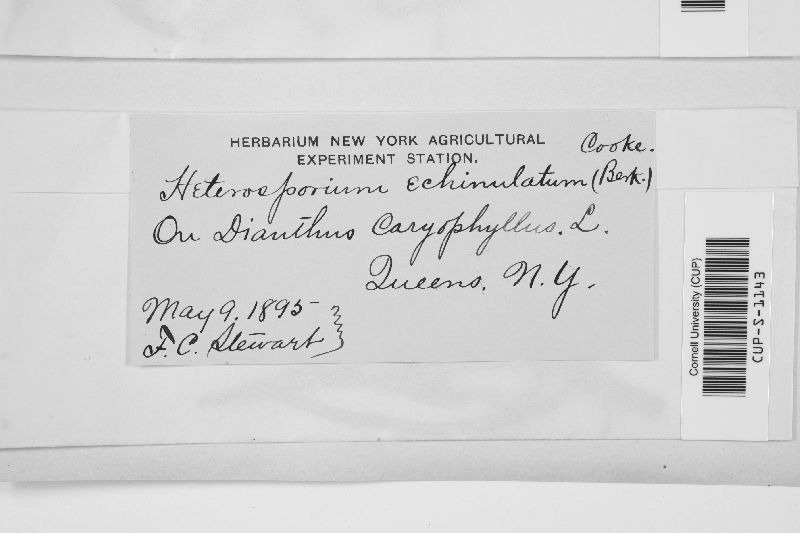 HERBARIUM NEW YORK AGRICULTURAL
EXPERIMENT STATION.
Cooke.
Heterosporium echinulatum (Berk.)
On Dianthus Caryophyllus. L.
Queens, N.Y.
May 9. 1895
F. C. Stewart
Cornell University (CUP)
CUP-S-1143